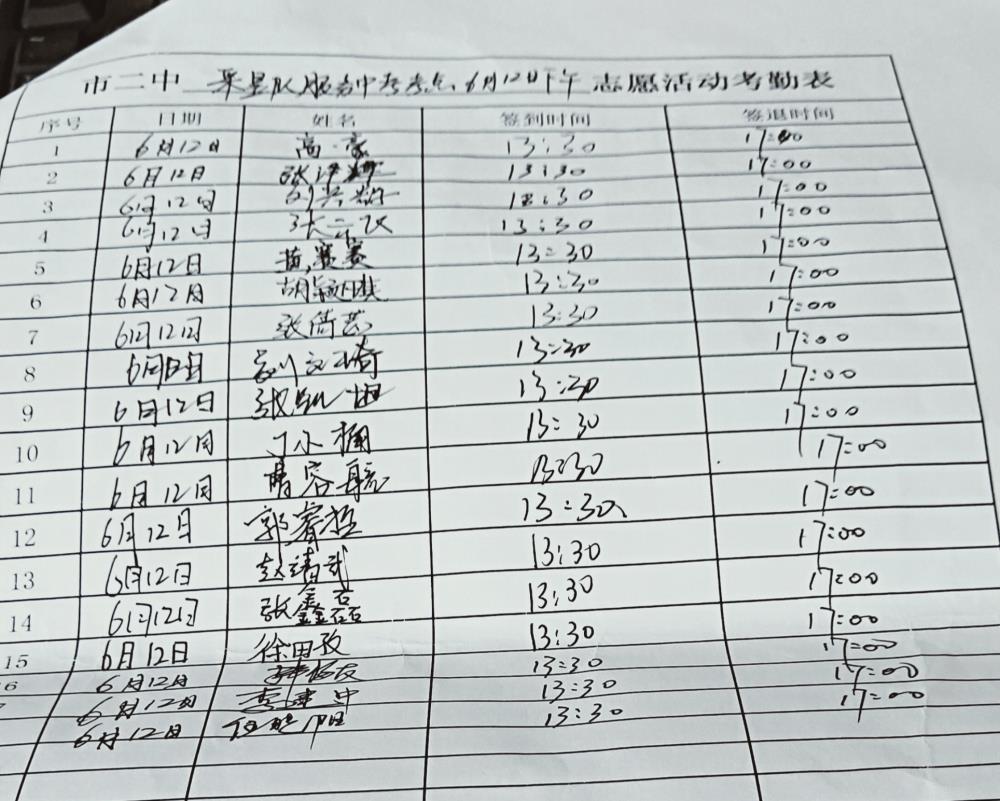 市二中 采星队服务中考考点6月12日下午 志愿活动考勤表
序号 日期 姓名 签到时间 签退时间
1 6月12日 高豪 13:30 17:00
2 6月12日 张 13:30 17:00
3 6月12日 13:30 17:00
4 6月12日 张云飞 13:30 17:00
5 6月12日 黄赛赛 13:30 17:00
6 6月12日 胡颖琪 13:30 17:00
7 6月12日 张倩芸 13:30 17:00
8 6月12日 刘文琦 13:30 17:00
9 6月12日 张 13:30 17:00
10 6月12日 丁小桶 13:30 17:00
11 6月12日 13:30 17:00
12 6月12日 郭睿哲 13:30 17:00
13 6月12日 赵靖武 13:30 17:00
14 6月12日 张鑫磊 13:30 17:00
15 6月12日 徐田孜 13:30 17:00
6 6月12日 13:30 17:00
6月12日 李建中 13:30 17:00
6月12日 13:30